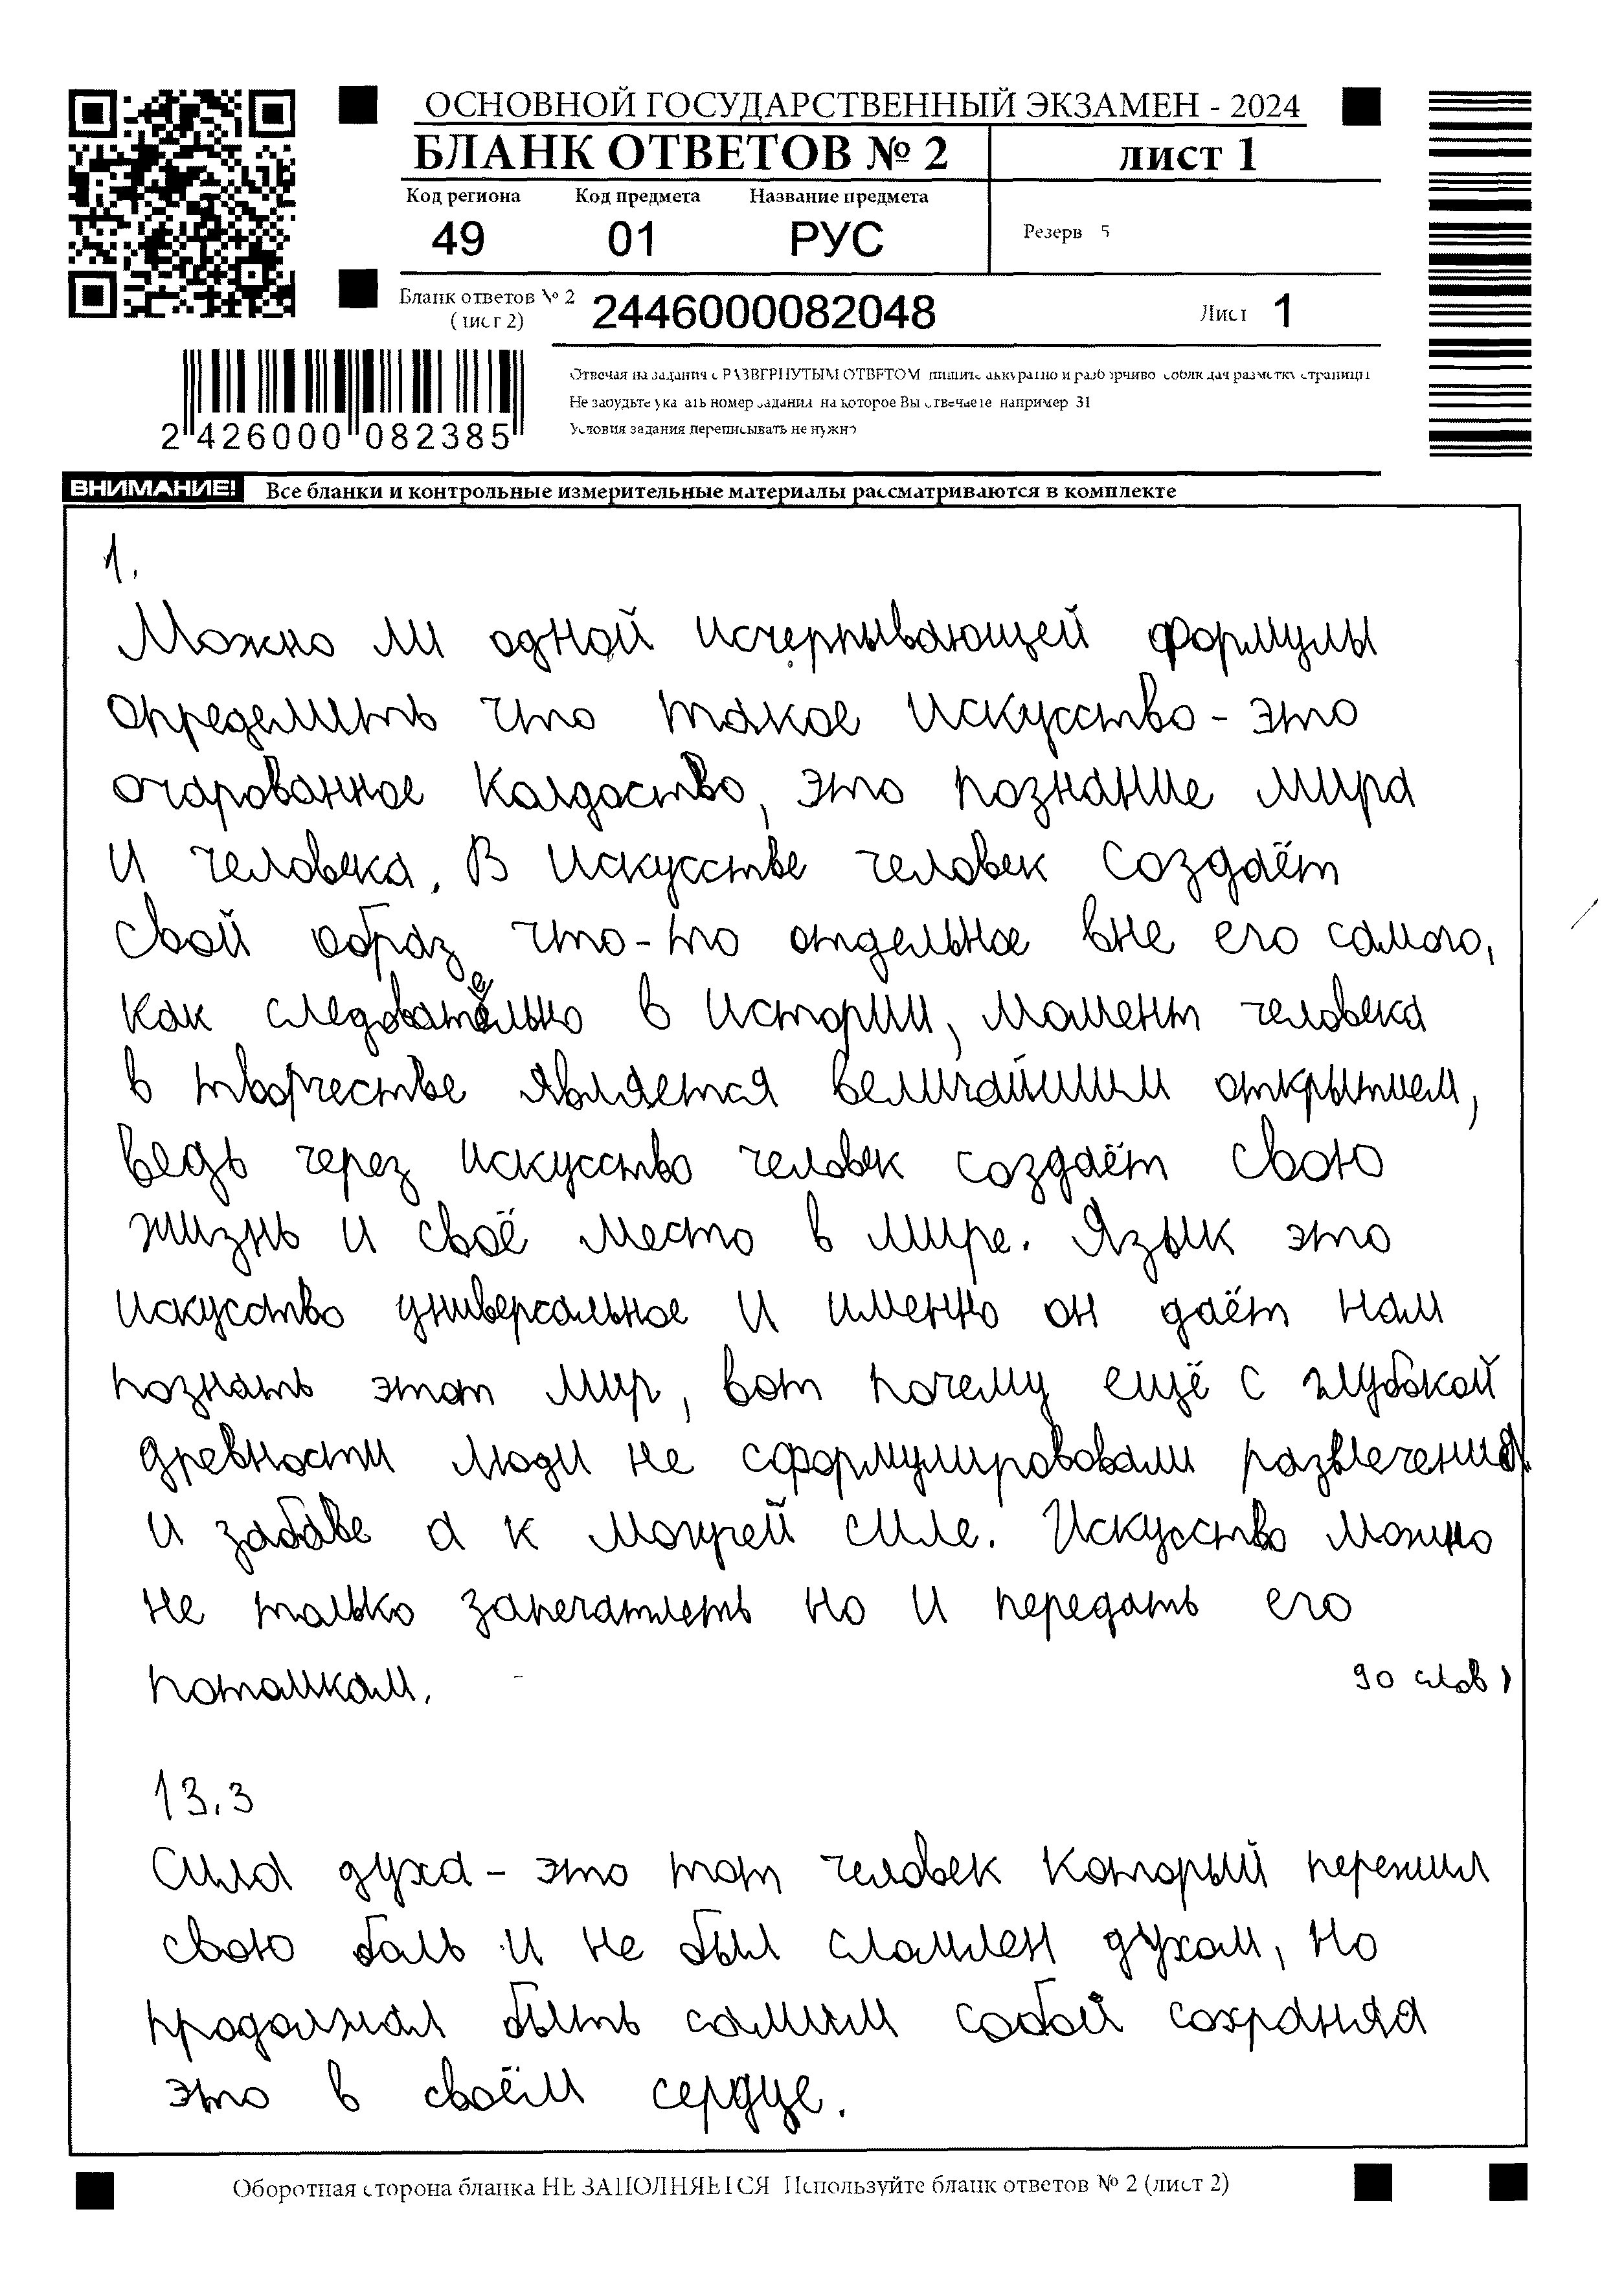 ОСНОВНОЙ ГОСУДАРСТВЕННЫЙ ЭКЗАМЕН - 2024
БЛАНК ОТВЕТОВ № 2
лист 1
Код региона Код предмета Название предмета
49 01 РУС
Резерв 5
Бланк ответов № 2
(лист 2)
2446000082048
Лист 1
2 426000 082385
Отвечая на задания с РАЗВЕРНУТЫМ ОТВЕТОМ пишите аккуратно и разборчиво соблюдая разметку страницы
Не забудьте указать номер задания на которое Вы отвечаете например 31
Условия задания переписывать не нужно
ВНИМАНИЕ! Все бланки и контрольные измерительные материалы рассматриваются в комплекте
1.
Можно ли одной исчерпывающей формулы
определить что такое искусство - это
очарованное колдоство, это познание мира
и человека. В искусстве человек создаёт
свой образ что-то отдельное вне его самого,
как следовательно в истории, момент человека
в творчестве является величайшим открытием,
ведь через искусство человек создаёт свою
жизнь и своё место в мире. Язык это
искусство универсальное и именно он даёт нам
познать этот мир, вот почему ещё с глубокой
древности люди не сформулирововали развлечения
и забаве а к могучей силе. Искусство можно
не только запечатлеть но и передать его
потомкам.
90 слов)
13.3
Сила духа - это тот человек который пережил
свою боль и не был сломлен духом, но
продолжал быть самим собой сохраняя
это в своём сердце.
Оборотная сторона бланка НЕ ЗАПОЛНЯЕТСЯ Используйте бланк ответов № 2 (лист 2)